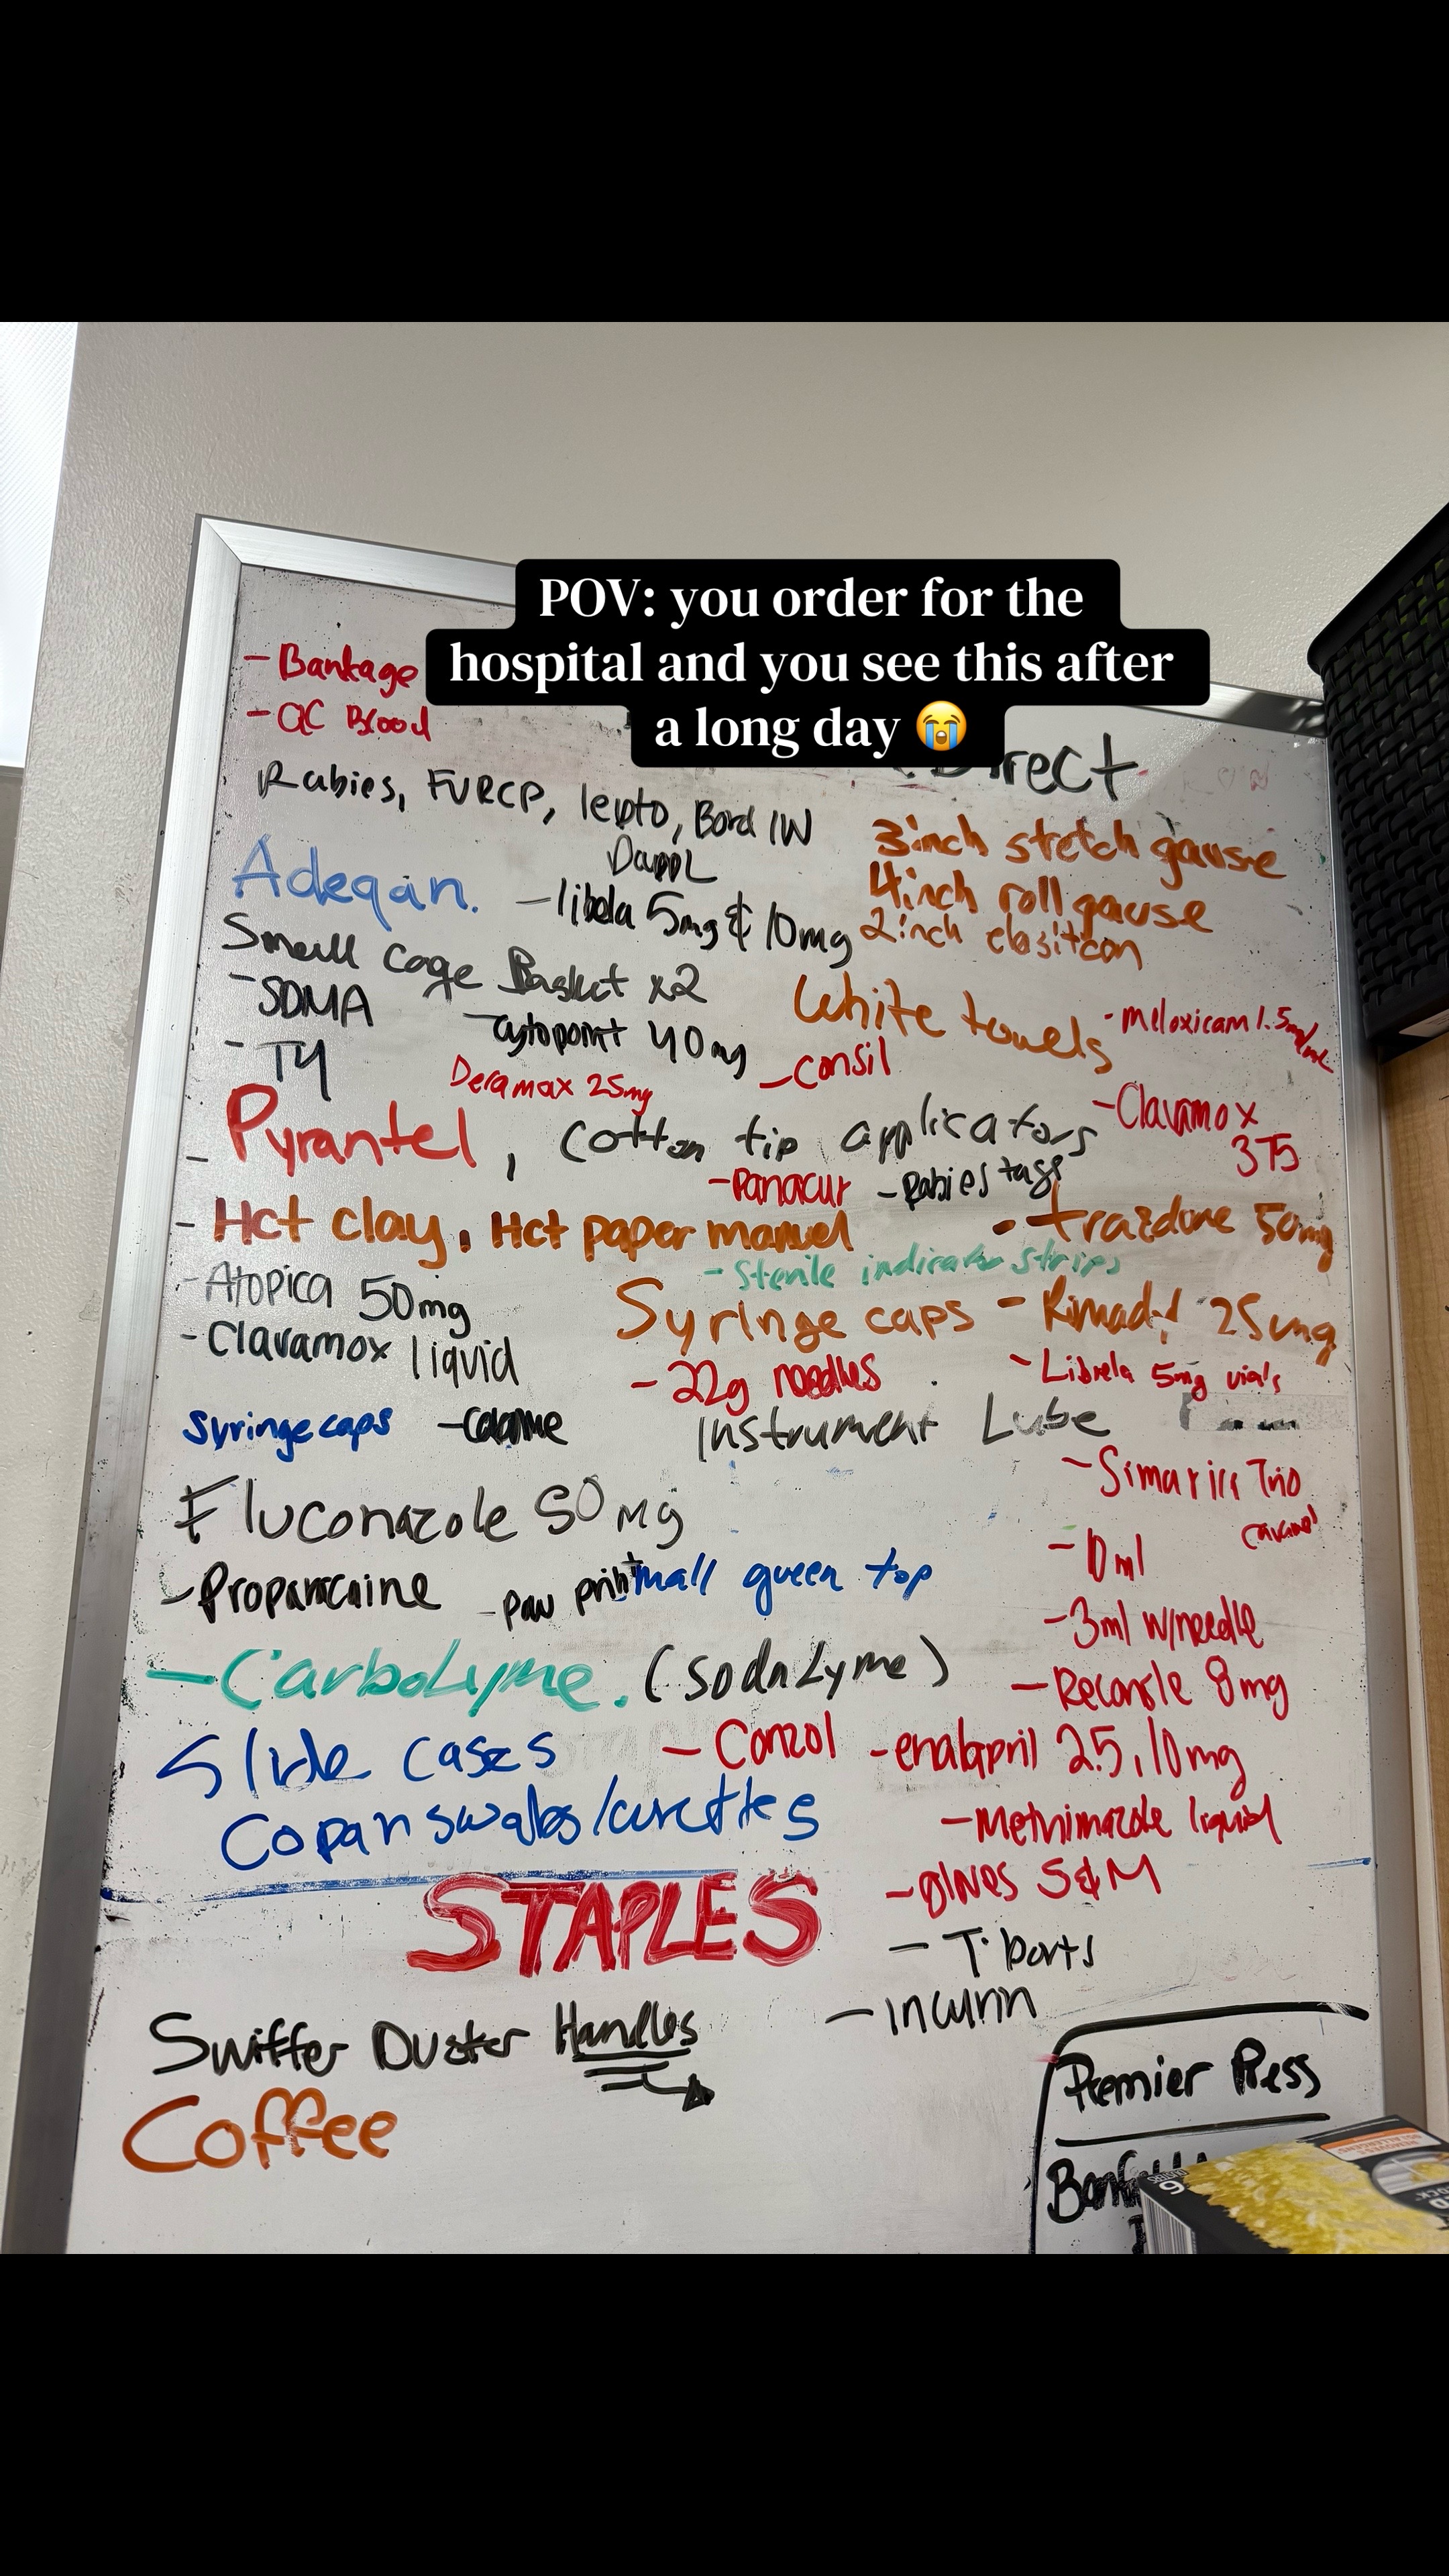 POV: you order for the
hospital and you see this after
a long day 😭
- Bankage
- QC Blood
Direct
Rabies, FVRCP, lepto, Bord IW
DAPPL
3inch stretch gause
4inch roll gause
2inch elasitcon
Adeqan.
- libela 5mg & 10mg
Small cage Basket x2
White towels
- Meloxicam 1.5mg/mL
- SDMA
- cytopoint 40mg
- consil
- T4
Deramax 25mg
- Clavamox
375
- Pyrantel, Cotton tip applicators
- Panacur - Rabies tags
- Hct clay, Hct paper manuel
- trazdone 50mg
- Sterile indicator strips
- Atopica 50mg
Syringe caps
- Rimadyl 25mg
- Clavamox liquid
- 22g needles
- Librela 5mg vials
Syringe caps
Instrument Lube
- Simarica Trio
Fluconazole 50mg
- 10ml
- Proparacaine
- paw print
small green top
- 3ml w/needle
- CarboLyme. (SodaLyme)
- Reconsile 8mg
Slide cases
- Conzol
- enalapril 2.5, 10mg
Copan swabs/curettes
- Methimazole liquid
- gloves S&M
STAPLES
- T-ports
- incurin
Swiffer Duster Handles
Coffee
Premier Press